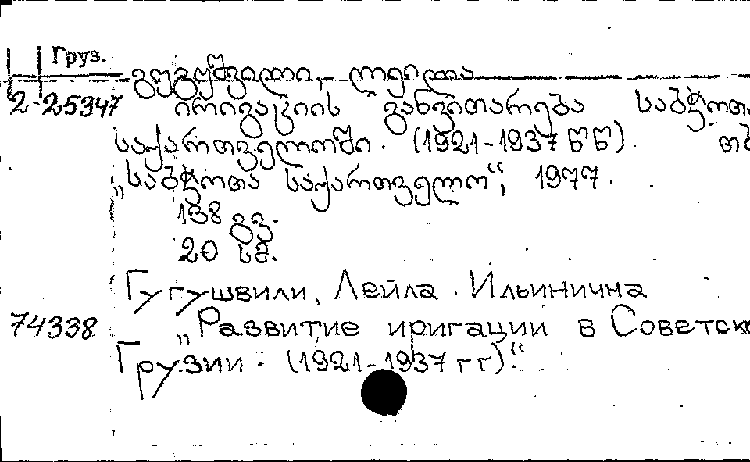 Груз.
გუგუშვილი, ლეილა
2-25347 ირიგაციის განვითარება საბჭოთა
საქართველოში. (1921-1937 წწ). თბ
„საბჭოთა საქართველო“, 1977.
138 გვ.
20 სმ.
Гугушвили, Лейла Ильинична
74338 „Развитие иригации в Советско
Грузии. (1921-1937 гг).“